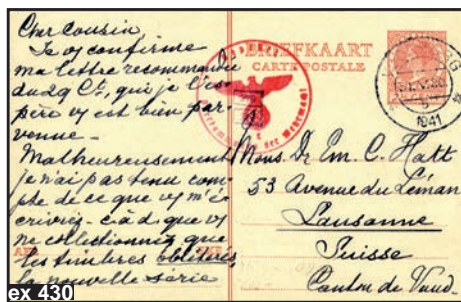 Cher Cousin
Je vs confirme
ma lettre recommandée
du 29 Ct, qui je l'es-
père vs est bien par-
venue -
Malheureusement
je n'ai pas tenu com-
pte de ce que vs m'é-
crivez - càd. que vs
ne collectionnez que
les timbres oblitérés,
la nouvelle série
BRIEFKAART
CARTE POSTALE
der Wehrmacht
1941
Mons. Dr Em. C. Hatt
53 Avenue du Léman
Lausanne
Suisse
Canton de Vaud-
ex 430